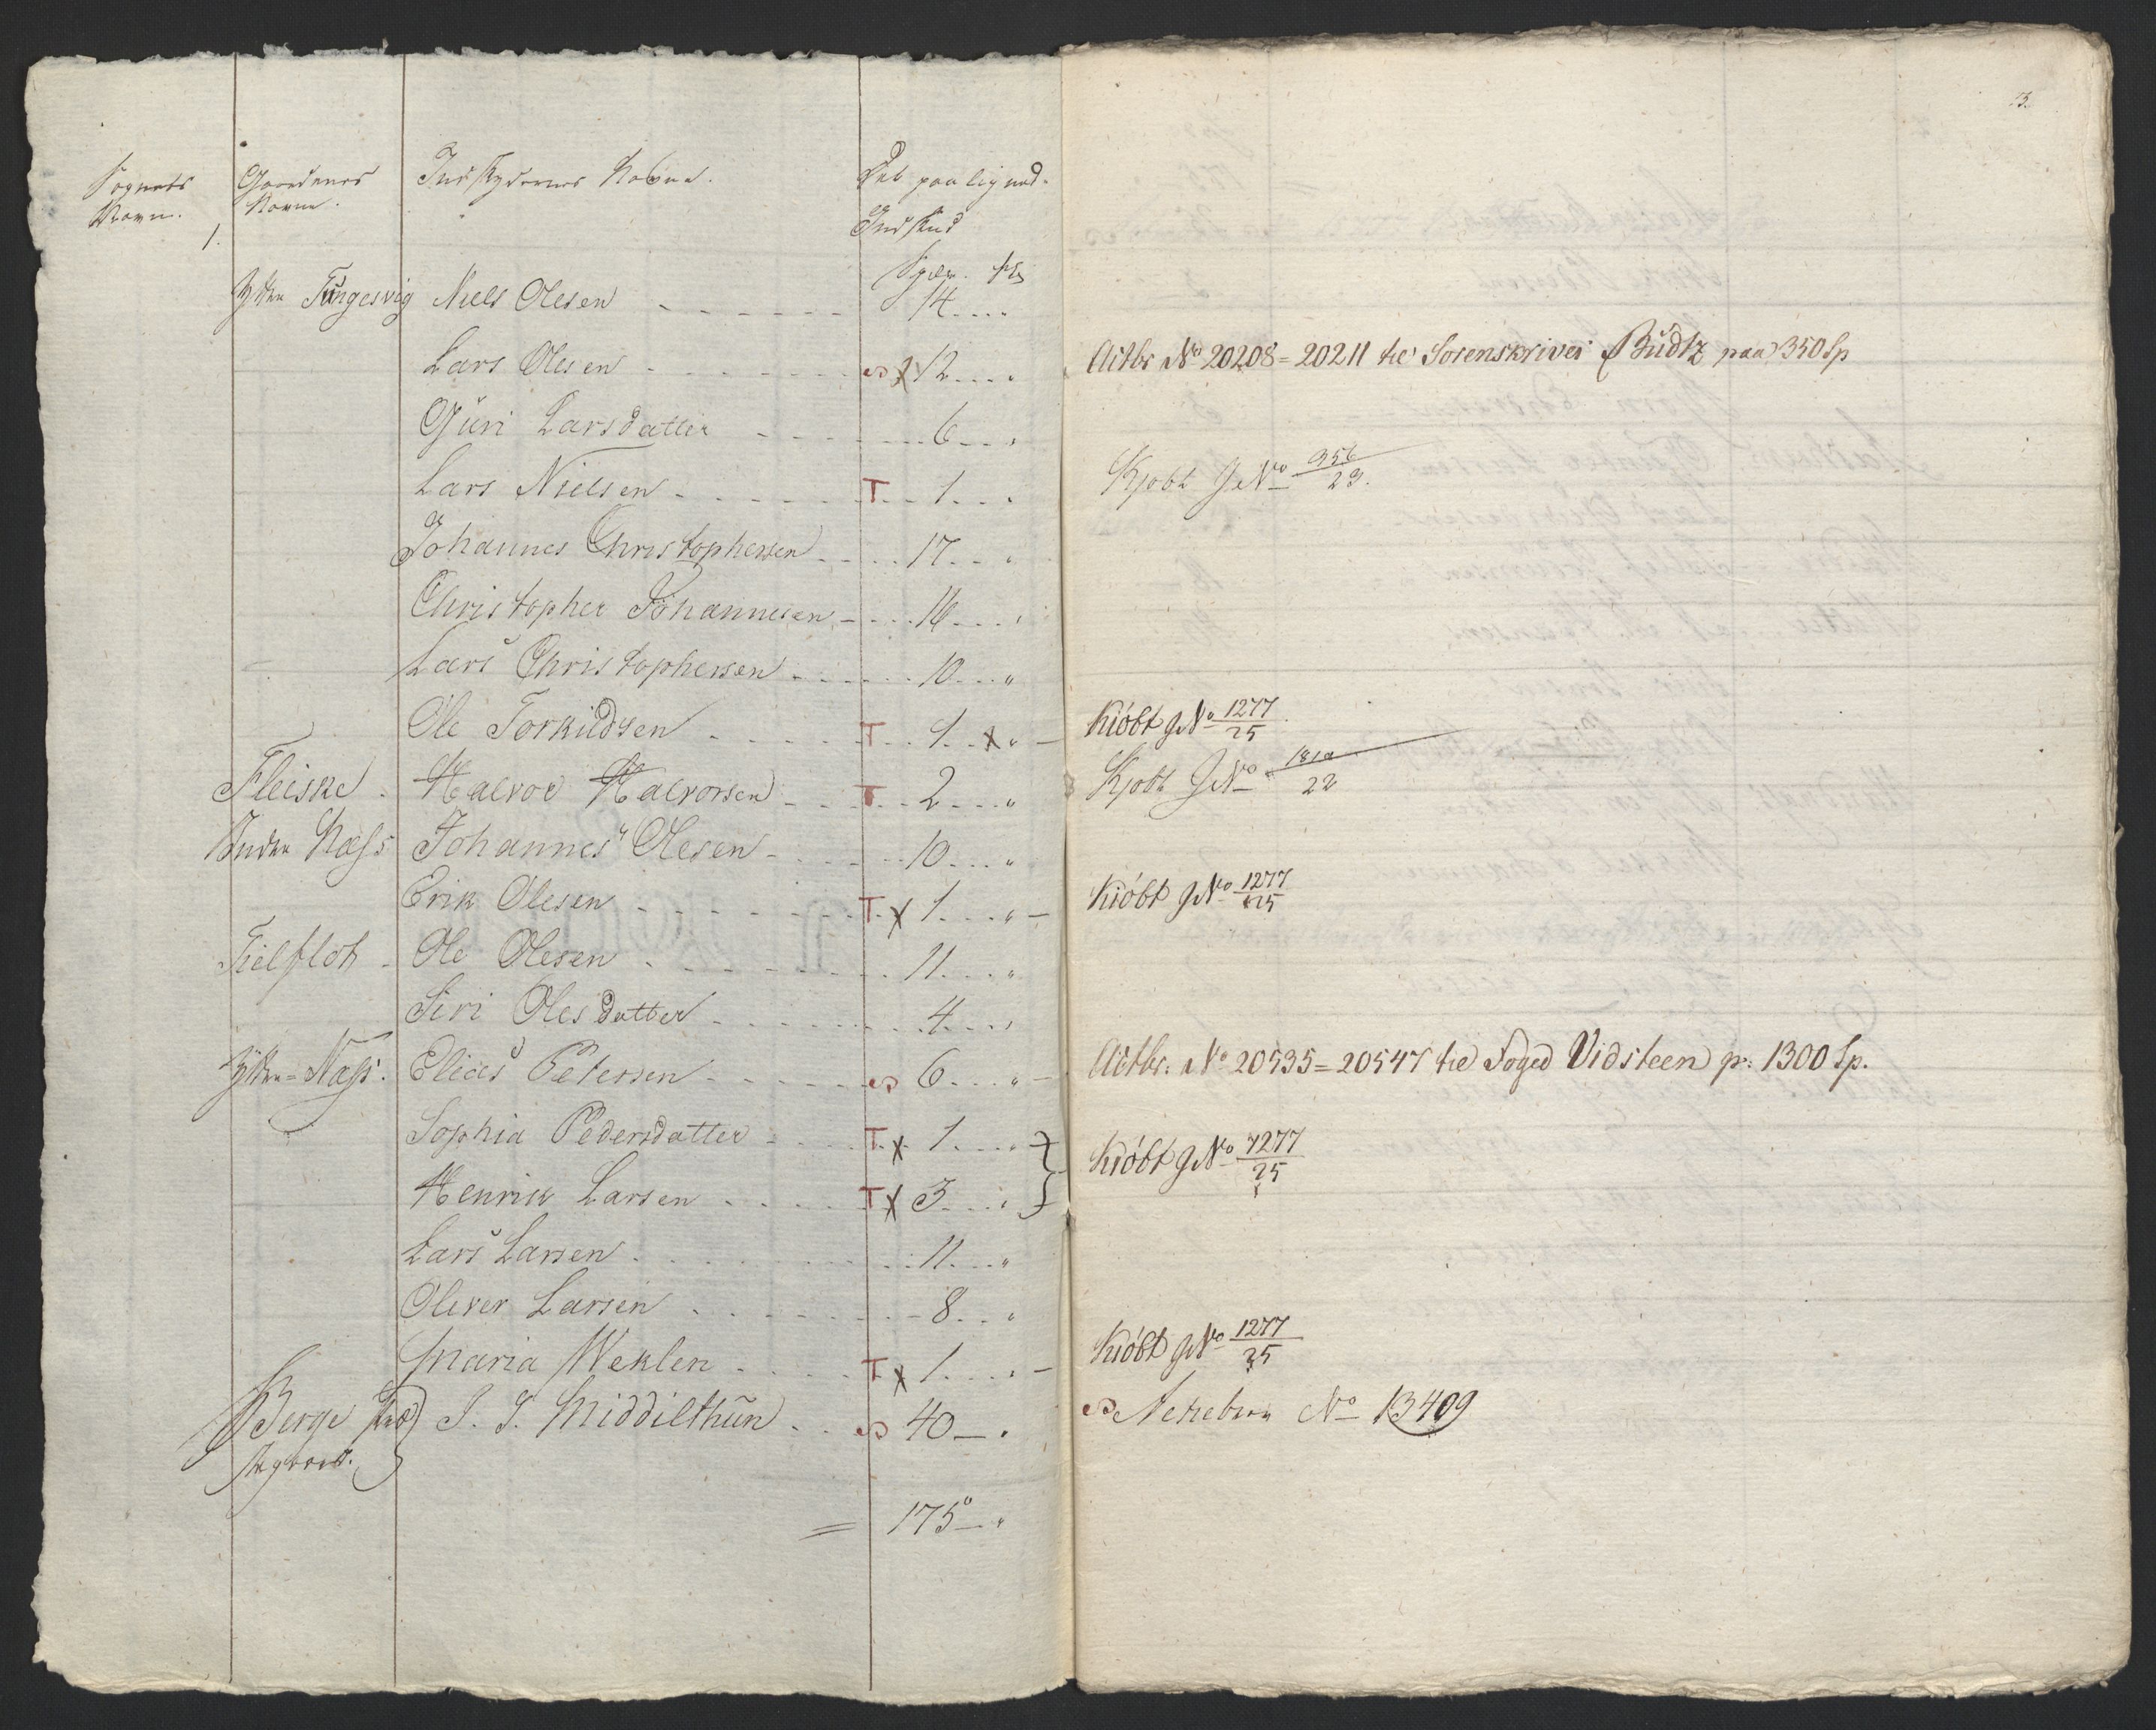 Sognets Navn. Gaardenes Navne. Indskydernes Navne. Det paalignede Indskud
1. Spdr. sk
Ytter Tungesvig Niels Olesen - - - - - - 14....
Lars Olesen - - - - - - - x 12...."
Guri Larsdatter - - - - - - 6..."
Lars Nielsen - - - - - - T 1..."
Johannes Christophersen - - - 17..."
Christopher Johannesen - - - 16..."
Lars Christophersen - - - - 10..."
Ole Torkildsen - - - - - T 1.. x "
Fleiske - Halvor Halvorsen - - - T 2..."
Indre Næss Johannes Olesen - - - - 10..."
Erik Olesen - - - - - - T x 1...."
Tielflot - Ole Olesen - - - - - - 11...."
Siri Olesdatter - - - - - 4..."
Ytter = Næss. Elias Petersen - - - - - 6...."
Sophia Pedersdatter - - - T x 1...." }
Henrik Larsen - - - - T x 3...." }
Lars Larsen - - - - - - 11..."
Oliver Larsen - - - - - 8..."
Maria Weklen - - - - T x 1...."
Berge J. S. Middilthun - - 40 — "
= 175 — "
13.
Actbr No 20208 = 20211 til Sorenskriver Budtz paa 350 Sp
Kjøbt G No 956/23.
Kiöbt G No 1277/25
Kjøbt G No 22
Kiöbt G No 1277/25
Actbr. No 20535 = 20547 til Foged Vidsteen p: 1300 Sp.
Kiöbt G No 1277/25
Kiöbt G No 1277/25
No 13409